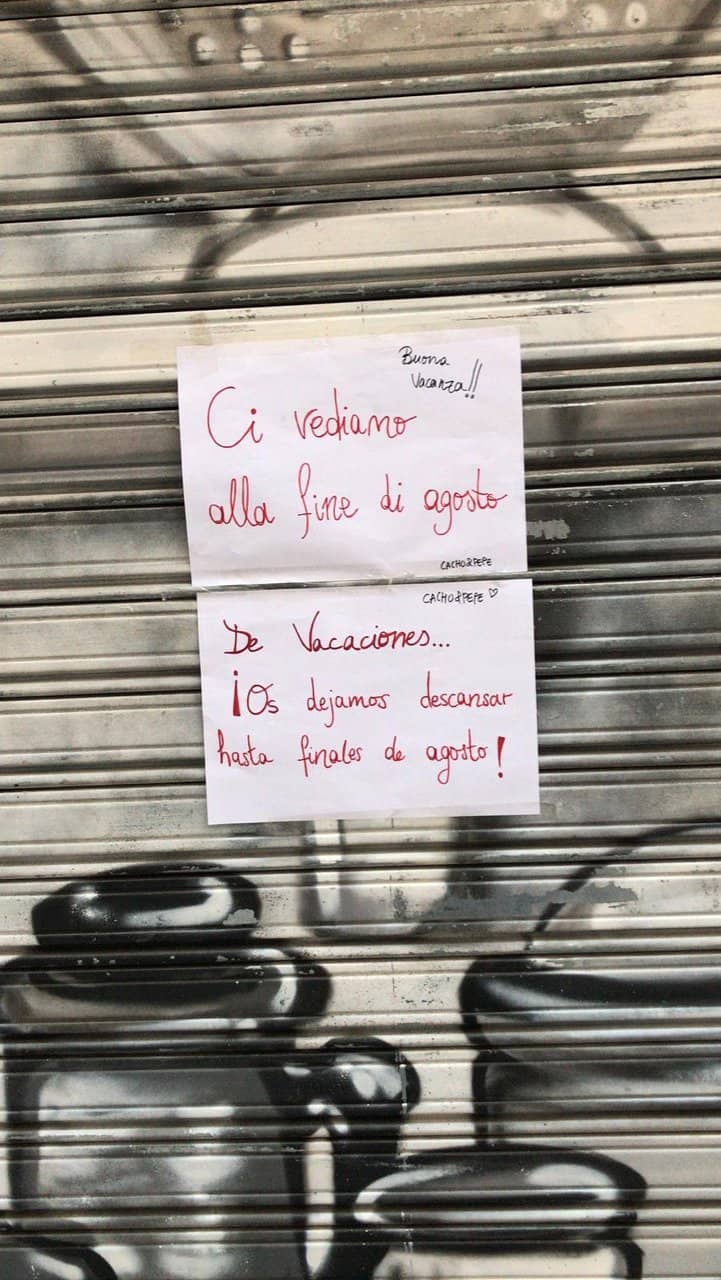 Buona
Vacanza!!
Ci vediamo
alla fine di agosto
CACHO&PEPE
CACHO&PEPE ♡
De Vacaciones...
¡Os dejamos descansar
hasta finales de agosto!